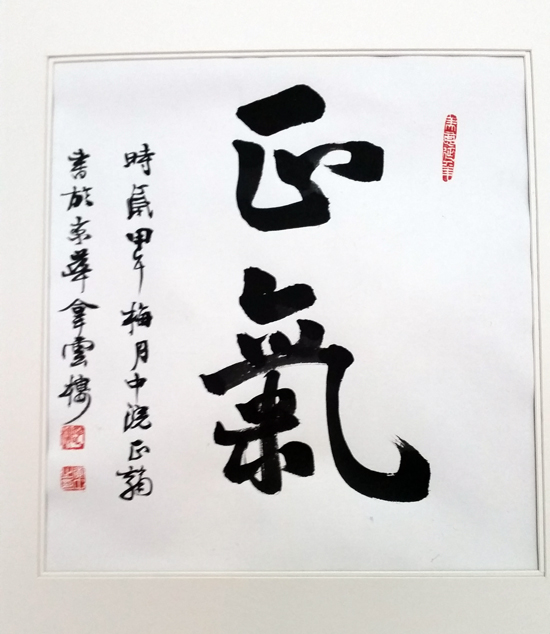 正氣
時歲甲午梅月中浣正鞠
書於京華拿雲樓